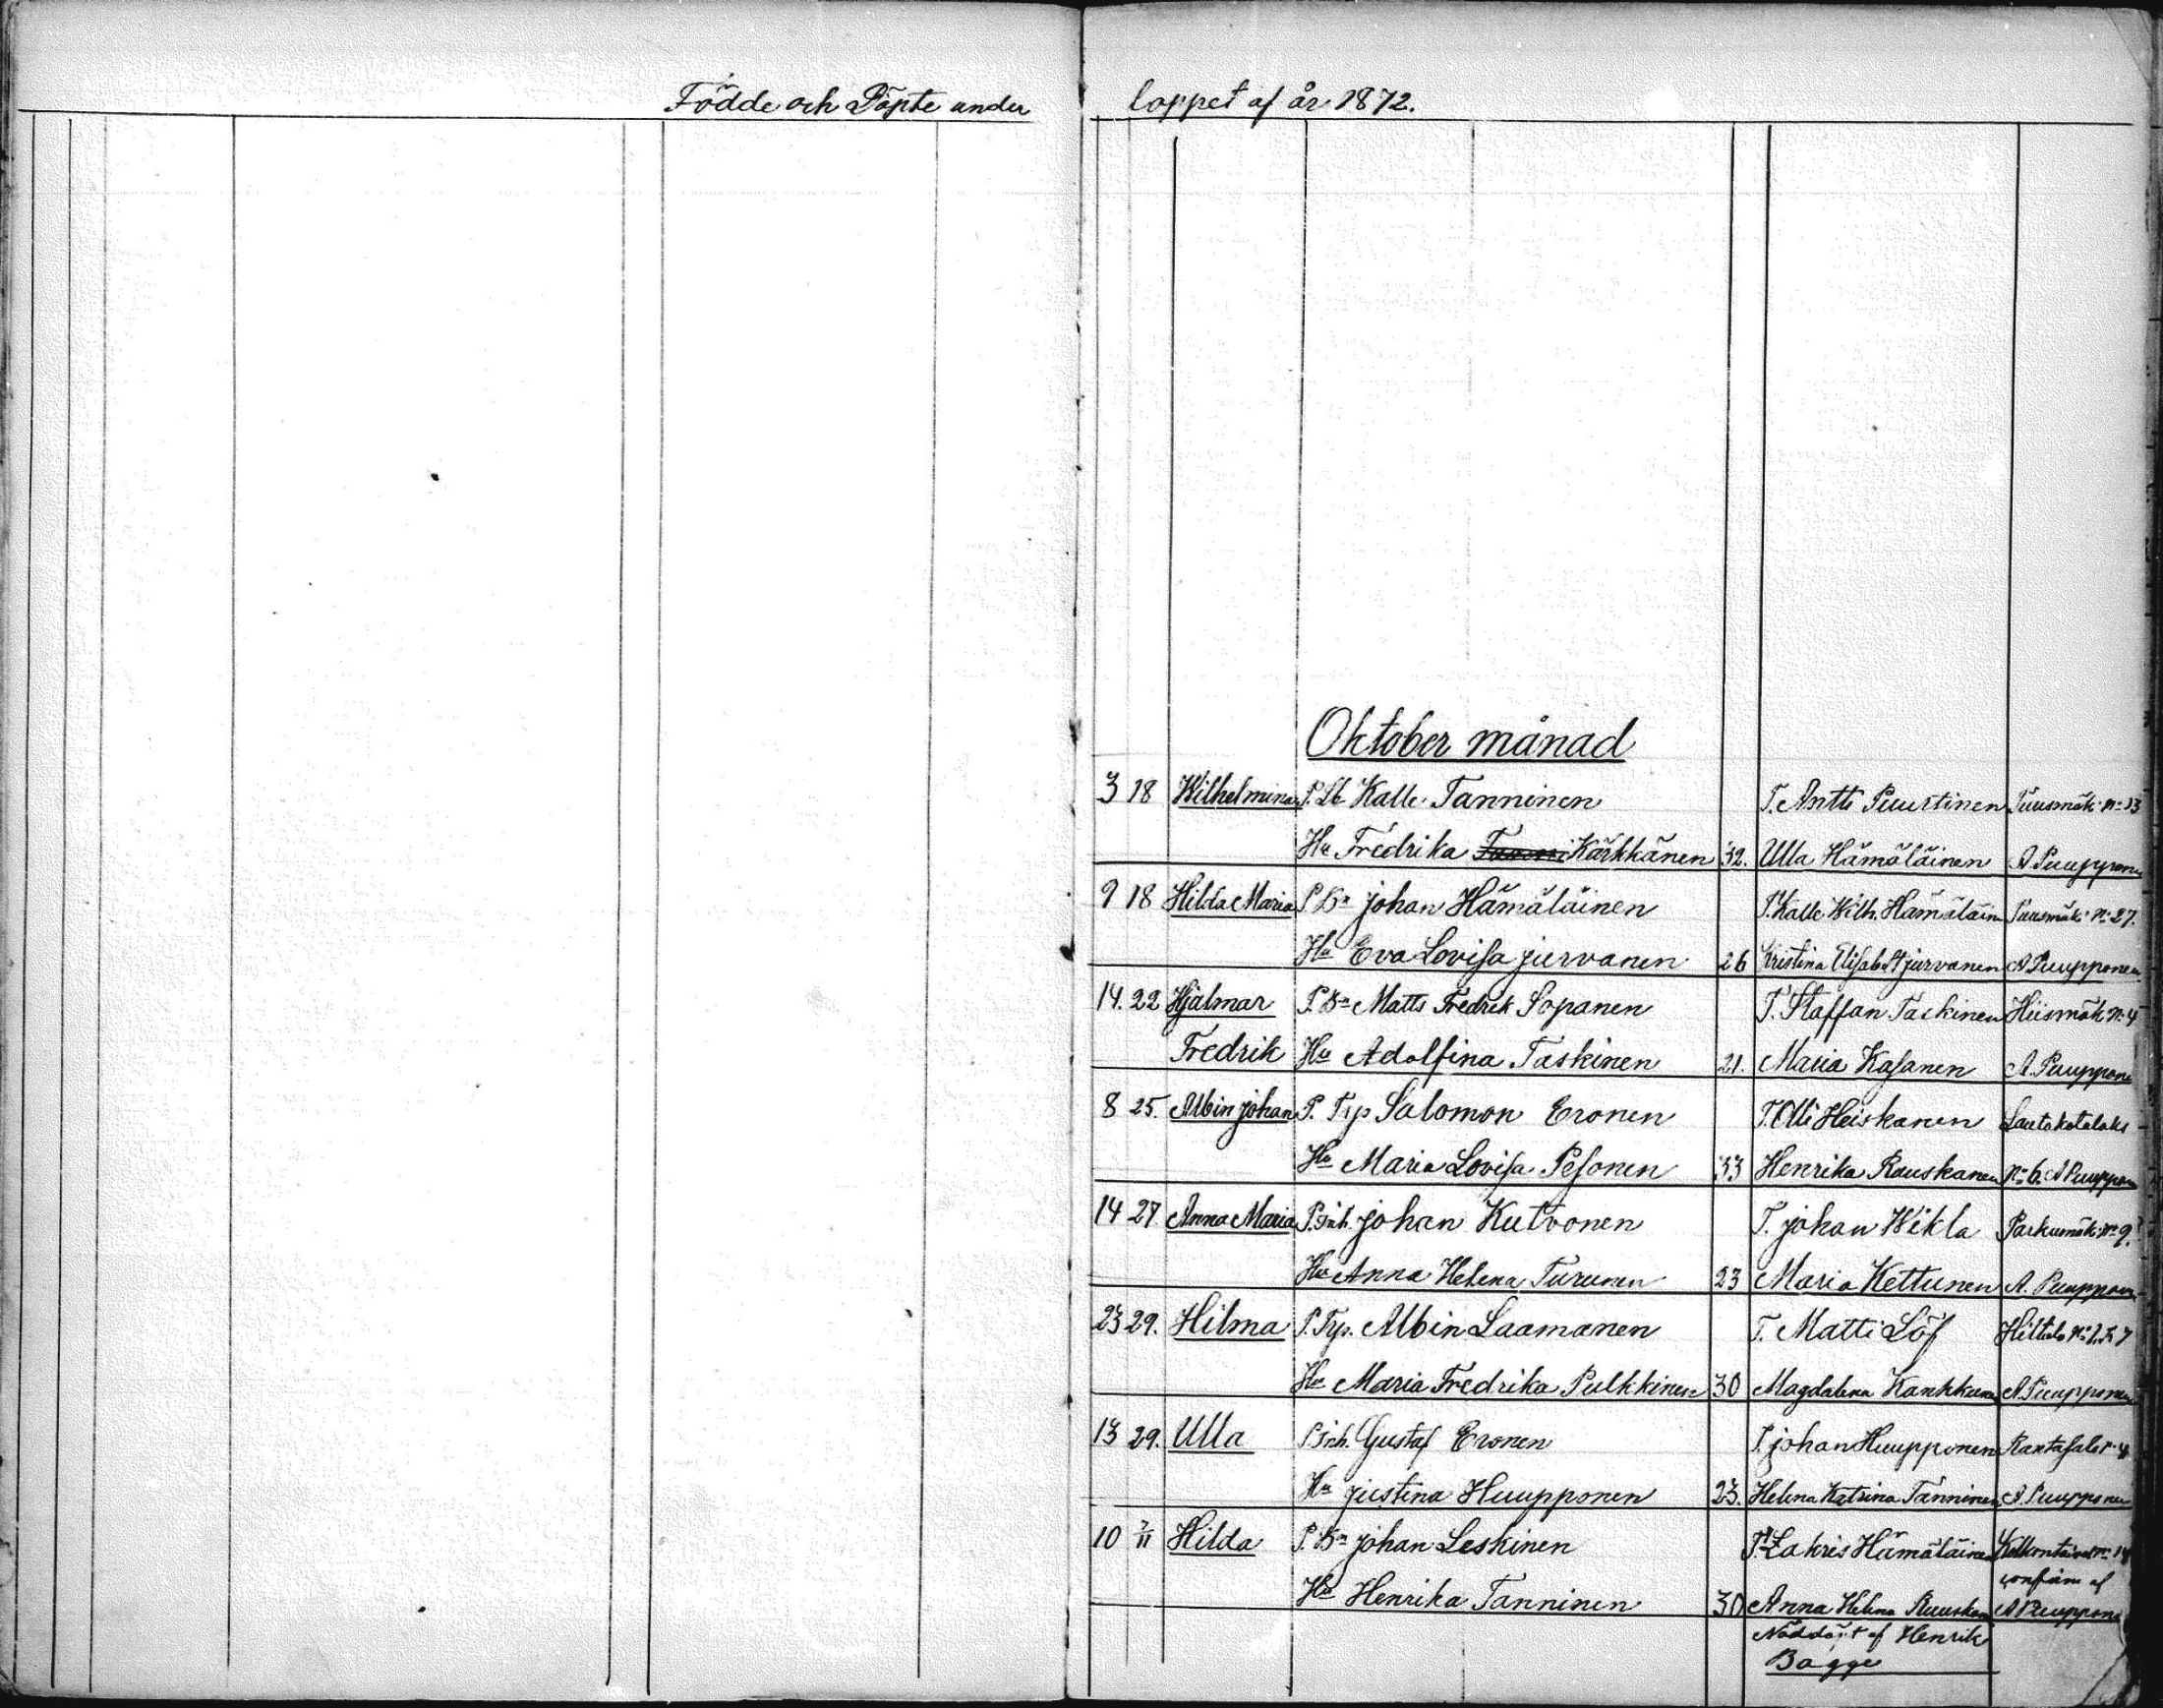 Födde och Döpte under loppet af år 1872.
Oktober månad
3 18 Wilhelmina P. Lb Kalle Tanninen T. Antti Puustinen Tuusmäk: No 13
Hu Fredrika Kärkkänen 32. Ulla Hämäläinen A Puupponen
9 18 Hilda Maria P Bn johan Hämäläinen T. Kalle Wilh. Hämäläin Tuusmäk: No 27.
Hu Eva Lovisa jurvanen 26 Kristina Elisabet jurvanen A Puupponen
14. 22 Hjalmar P. Bn Matts Fredrik Sopanen T. Staffan Taskinen Hiismäk No 4
Fredrik Hu Adolfina Taskinen 21. Maria Kasanen A. Puuppone
8 25. Albin johan P. Trp Salomon Eronen T. Olli Heiskanen Lautakotalaks
Hu Maria Lovisa Pesonen 33 Henrika Rauskanen No 6. A Puuppon
14 27 Anna Maria P. Inh. johan Kutvonen T. johan Wikla Parkumäk: No 9.
Hu Anna Helena Turunen 23 Maria Kettunen A. Puuppone
23 29. Hilma P. Trp. Albin Laamanen T. Matti Löf
Hu Maria Fredrika Pulkkinen 30 Magdalena Kankkunen A. Puupponen
13 29. Ulla P Inh. Gustaf Eronen T. johan Huupponen Rantasalo No 4
Hu justina Huupponen 23. Helena Katrina Tanninen A. Puupponen
10 7/11 Hilda P. Bn johan Leskinen T. Zakris Hämäläinen
Hu Henrika Tanninen 30 Anna Helena Ruuskan confirm af A Puuppone
Nöddöpt af Henrik
Bagge